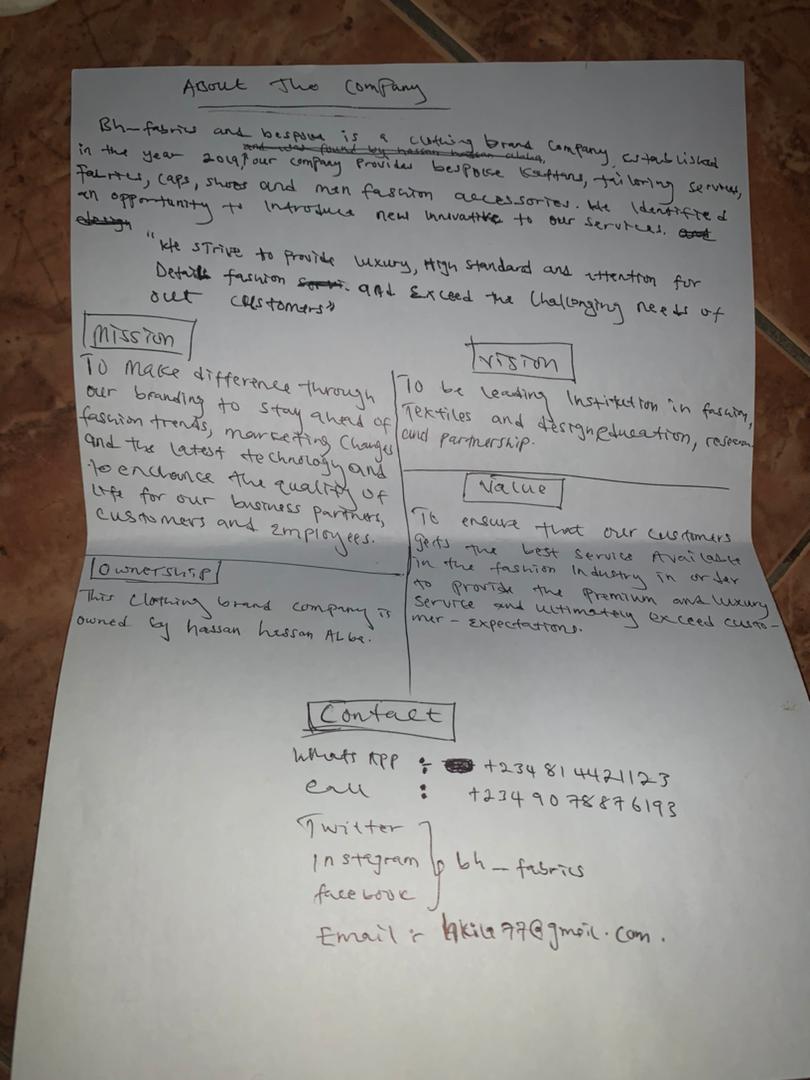 About The Company
Bh-fabrics and bespoke is a clothing brand company, established
in the year 2019, our company provides bespoke kaftans, tailoring services,
Fabrics, caps, shoes and men fashion accessories. We Identified
an opportunity to introduce new innovative to our services.
"We strive to provide luxury, High standard and attention for
Detail fashion and exceed the challenging needs of
out customers"
Mission
To Make difference through
our branding to stay ahead of
fashion trends, marketing changes
and the latest technology and
to enchance the quality of
life for our business partners,
customers and Employees.
Vision
To be leading Institution in fashion,
Textiles and design Education, research
and partnership.
Value
To ensure that our customers
gets the best service Available
in the fashion Industry in order
to provide the premium and luxury
service and ultimately exceed custo-
mer - expectations.
Ownership
This clothing brand company is
owned by hassan hassan
Contact
Whats App : +234 814421123
Call : +234 9078876193
Twitter
Instagram bh_fabrics
facebook
Email :